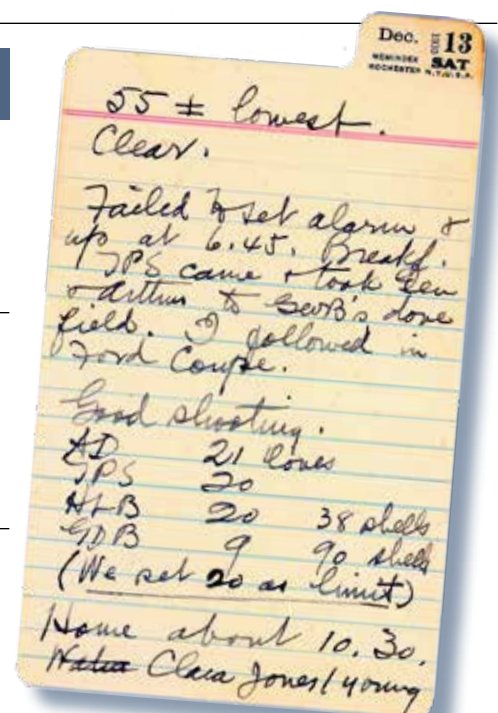 Dec. 1930 13
REMINDER SAT
ROCHESTER N.Y. U.S.A.
55 ± lowest.
Clear.
Failed to set alarm &
up at 6.45. Breakf.
JPS came & took Gen
& Arthur to GeoB's dove
field. I followed in
Ford Coupe.
Good shooting.
AD 21 doves
JPS 20
HLB 20 38 shells
GDB 9 90 shells
(We set 20 as limit)
Home about 10.30.
Clara Jones / young